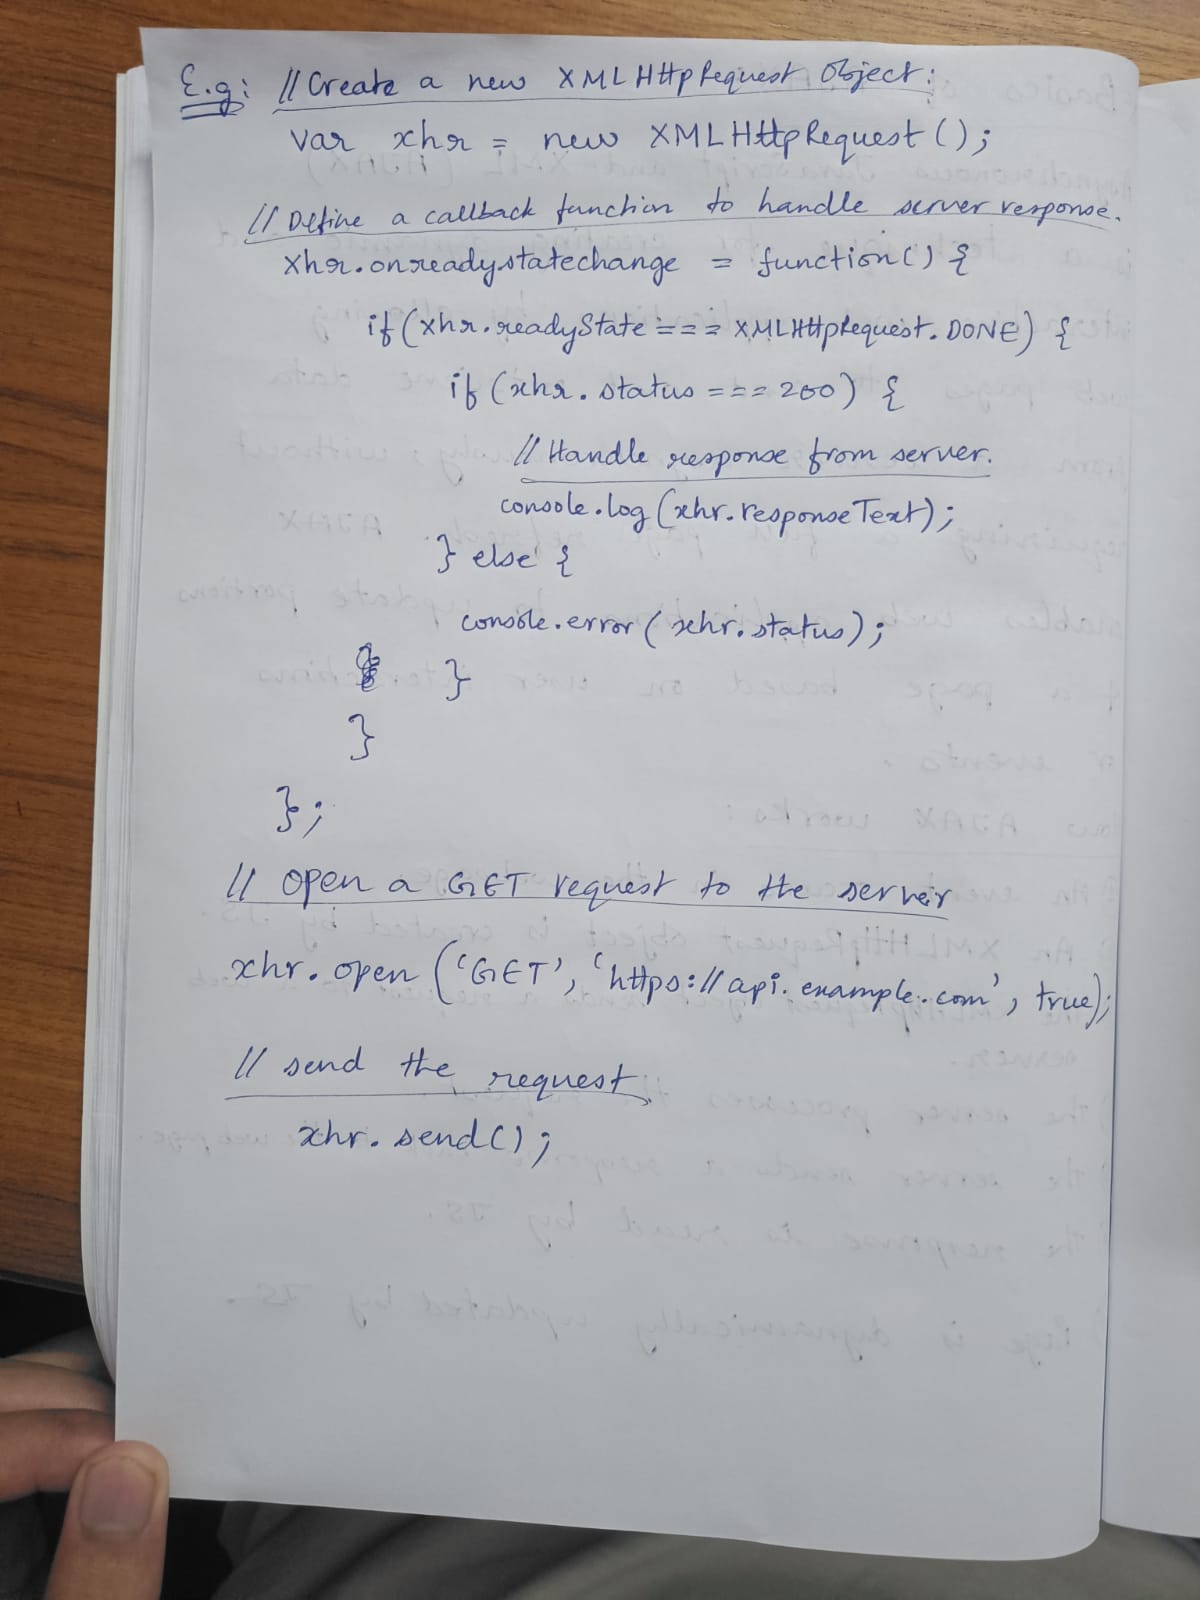 E.g: // Create a new XMLHttpRequest Object:
var xhr = new XMLHttpRequest();
// Define a callback function to handle server response.
xhr.onreadystatechange = function() {
if (xhr.readyState === XMLHttpRequest.DONE) {
if (xhr.status === 200) {
// Handle response from server.
console.log(xhr.responseText);
} else {
console.error(xhr.status);
}
}
};
// open a GET request to the server
xhr.open('GET', 'https://api.example.com', true);
// send the request
xhr.send();